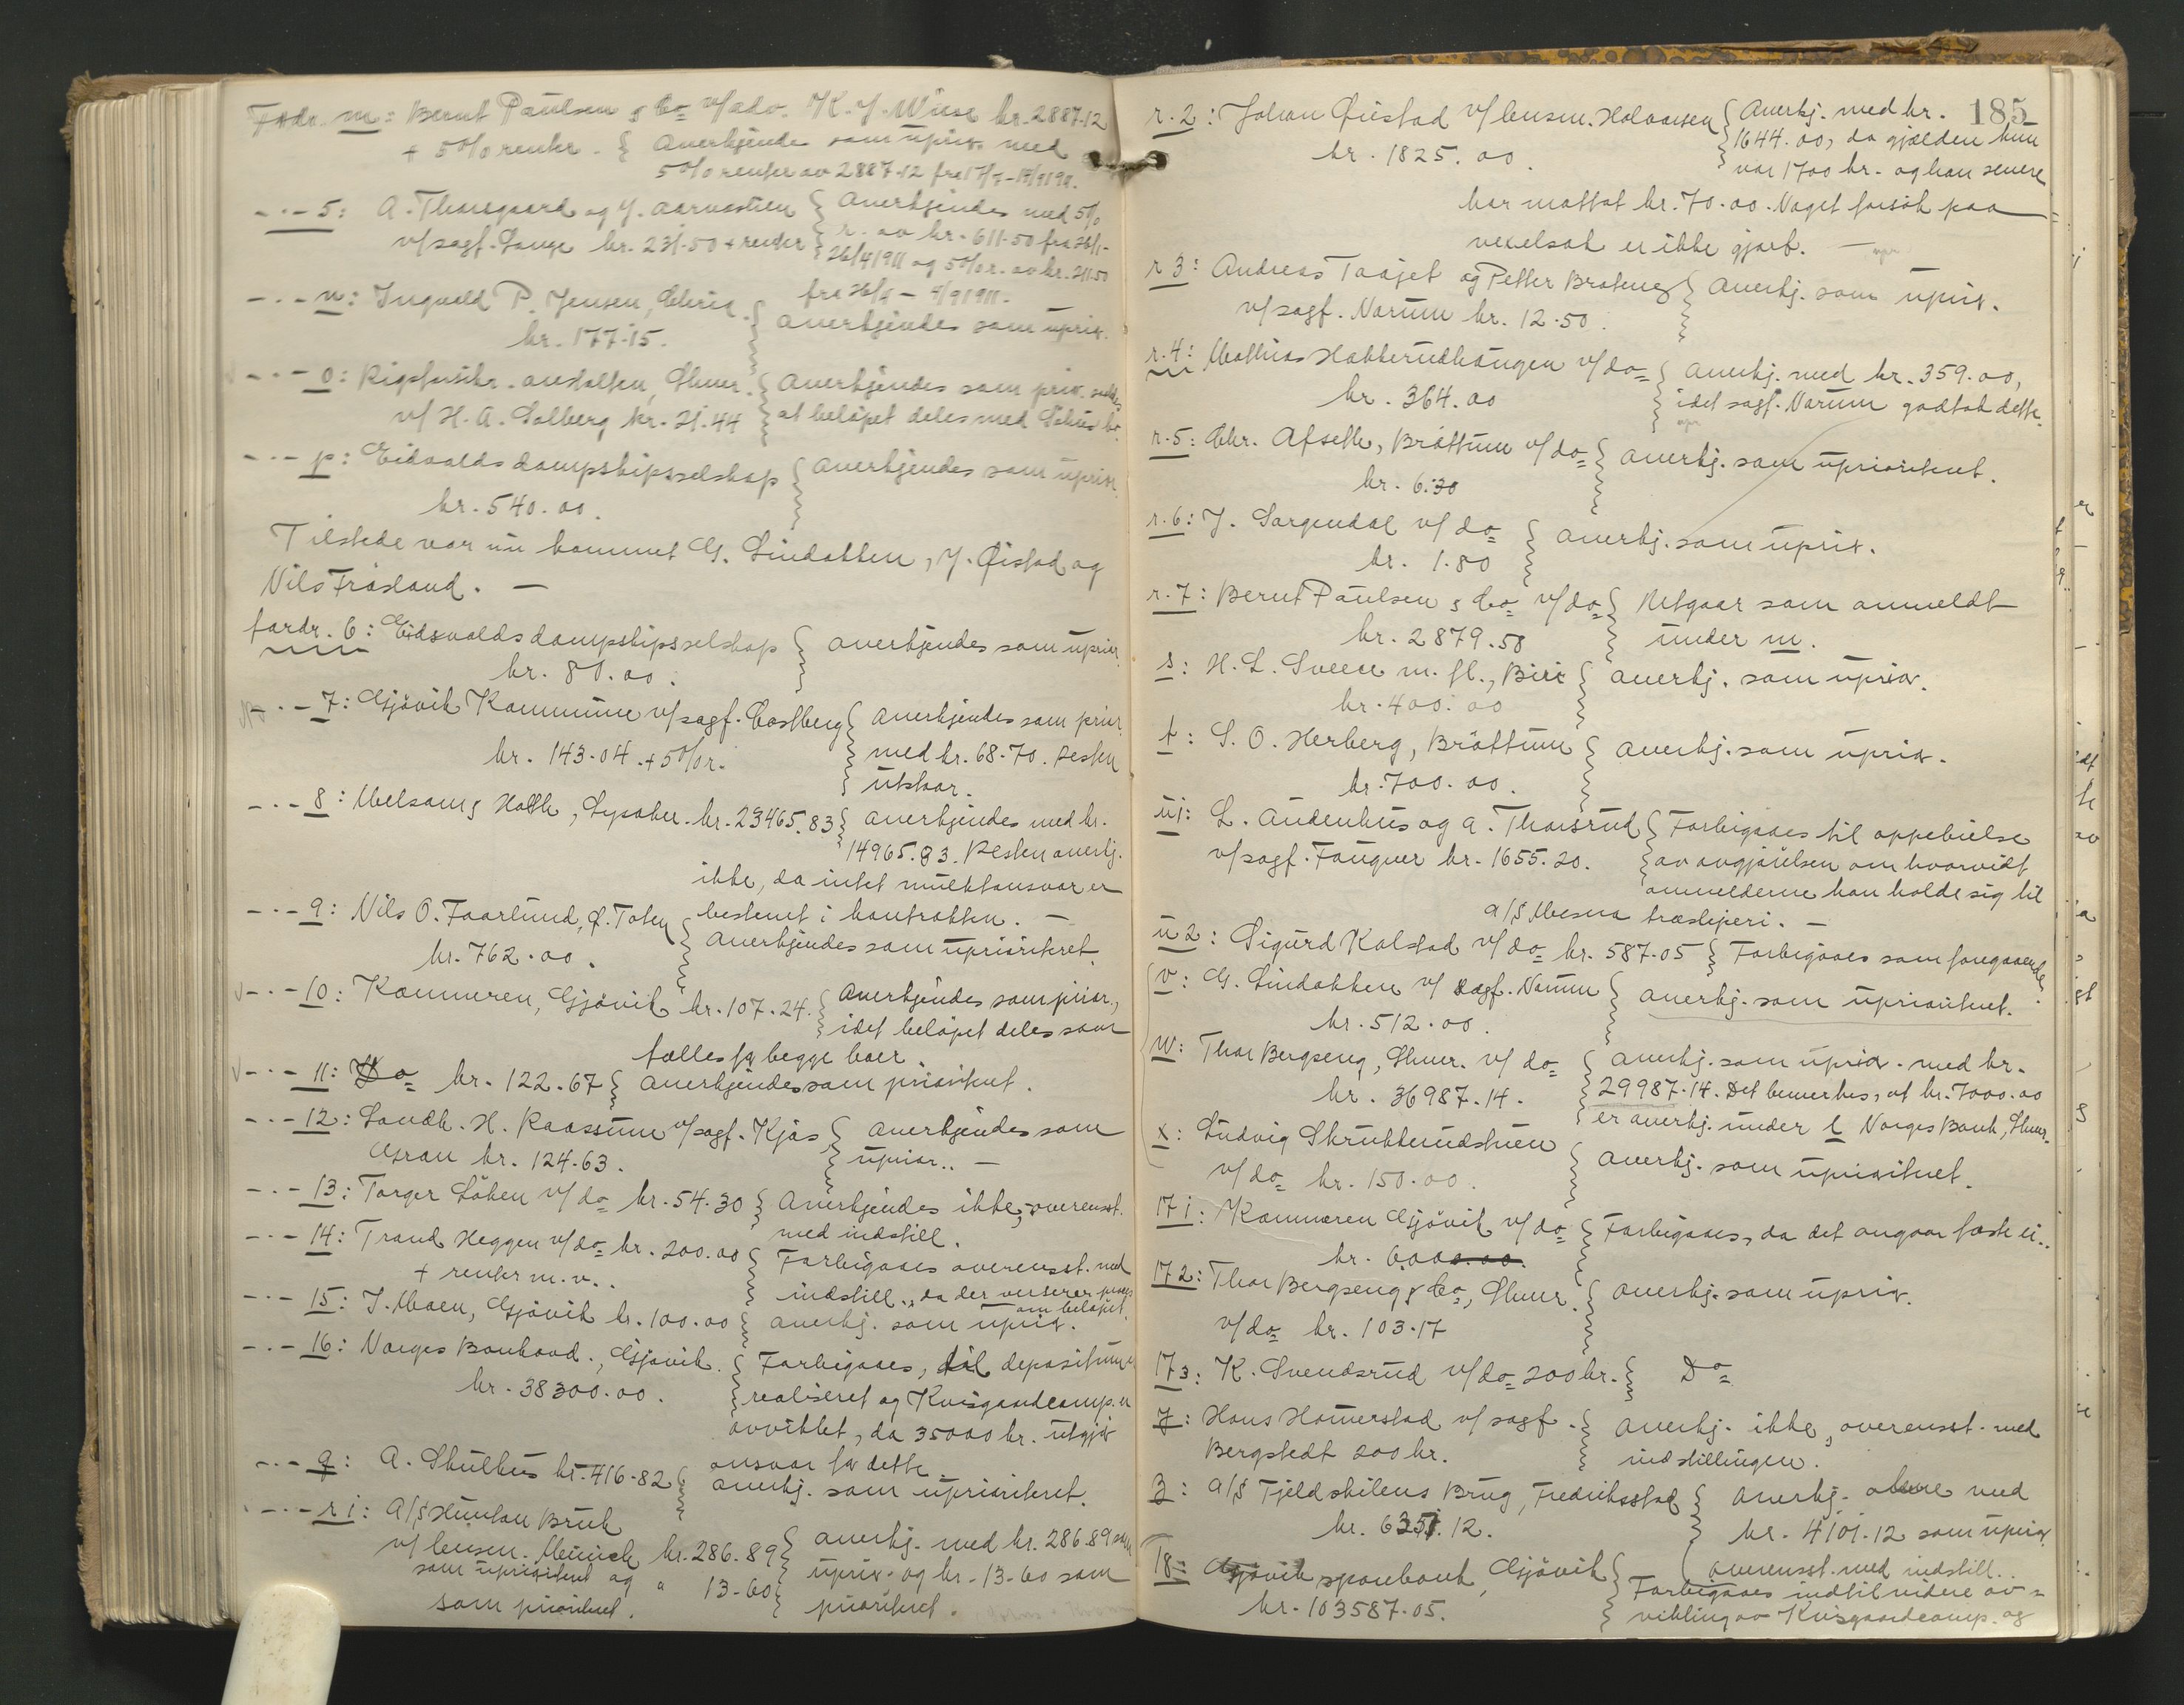 Fordr. m: Bernt Paulsen & Co v/adv. K. J. Wiise kr. 2887.12
+ 5% renter. Anerkjendes som uprior. med
5% renter av 2887.12 fra 17/7 – 19/9 1911.
- . - 5: A. Thorsgaard og J. Aarnestuen Anerkjendes med 5%
v/sagf. Lange kr. 231.50 + renter r. av kr. 611.50 fra 26/1 -
26/4 1911 og 5% r. av kr. 211.50
fra 26/4 – 4/9 1911.
- . - n: Ingvald P. Jensen, Chria. anerkjendes som uprior.
kr. 177.15.
- . - o: Rigsforsikr. anstalten, Lhmr. Anerkjendes som prior. saaledes
v/ H. A. Solberg kr. 21.44 at beløpet deles med
- . - p: Eidsvolds dampskipsselskap anerkjendes som uprior.
kr. 540.00.
Tilstede var nu kommet G. Lindokken, J. Øistad og
Nils Frøsland. —
fordr. 6: Eidsvolds dampskipsselskap anerkjendes som uprior.
kr. 80.00.
- . - 7: Gjøvik Kommune v/sagf. Castberg anerkjendes som prior.
kr. 143.04 + 5% r. med kr. 68.70. Resten
utstaar.
- . - 8: Melsom & Holth, Lysaker. kr. 23465.83 anerkjendes med kr.
14965.83. Resten anerkj.
ikke, da intet mulktansvar er
bestemt i kontrakten. —
- . - 9: Nils O. Faarlund, Ø. Toten Anerkjendes som uprioriteret.
kr. 762.00.
- . - 10: Kæmneren, Gjøvik kr. 107.24. Anerkjendes som prior.,
idet beløpet deles som
fælles for begge boer.
- . - 11: Do kr. 122.67 anerkjendes som prioritert.
- . - 12: Landh. H. Raassum v/sagf. Kjøs anerkjendes som
Gran kr. 124.63. uprior.. —
- . - 13: Torger Løken v/do kr. 54.30 Anerkjendes ikke, overensst.
med indstill.
- . - 14: Trond Heggen v/do kr. 200.00 Forbigaaes overensst. med
+ renter m.v.. indstill., da der verserer proces
om beløpet.
- . - 15: J. Moen, Gjøvik kr. 100.00 anerkj. som uprior.
- . - 16: Norges Bankavd., Gjøvik. Forbigaaes, til depositum er
kr. 38300.00. realiseret og Kvisgaardcomp. er
avviklet, da 35000 kr. utgjør
ansvar for dette.
- . - q: A. Skulhus kr. 416.82 anerkj. som uprioriteret.
- . - r 1: A/S Hunton Bruk
v/ lensm. Meinich kr. 286.89 anerkj. med kr. 286.89 som
som uprioritert og " 13.60 uprior. og kr. 13.60 som
som prioritert. prioritert.
185
r. 2: Johan Øistad v/ lensm. Halvorsen Anerkj. med kr.
kr. 1825.00. 1644.00, da gjælden kun
var 1700 kr. og han senere
har mottat kr. 70.00. Noget forsøk paa
vexelsak er ikke gjort. —
r 3: Andreas Taajet og Petter Broteng Anerkj. som uprior.
v/sagf. Narum kr. 12.50.
r. 4: Mathias Hakkerudhaugen v/do anerkj. med kr. 359.00,
kr. 364.00 idet sagf. Narum godtok dette.
r. 5: Chr. Afseth, Brøttum v/do anerkj. som uprioritert.
kr. 6.30
r. 6: J. Sorgendal v/do anerkj. som uprior.
kr. 1.80
r. 7: Bernt Paulsen & Co v/do Utgaar som anmeldt
kr. 2879.58 under m.
s: H. L. Sveen m. fl., Biri anerkj. som uprior.
kr. 400.00
t: S. O. Herberg, Brøttum anerkj. som uprior.
kr. 700.00.
u 1: L. Audenhus og A. Thorsrud Forbigaaes til oppebielse
v/sagf. Fougner kr. 1655.20. av avgjørelsen om hvorvidt
anmelderne kan holde sig til
A/S Mesna træsliperi. —
u 2: Sigurd Kolstad v/do kr. 587.05 Forbigaaes som foregaaende.
v: G. Lindokken v/ sagf. Narum anerkj. som uprioritert.
kr. 512.00.
w: Thor Bergseng, Lhmr. v/do anerkj. som uprior. med kr.
kr. 36987.14. 29987.14. Det bemerkes, at kr. 7000.00
er anerkj. under l Norges Bank, Lhmr.
x: Ludvig Skrukkerudstuen anerkj. som uprioritert.
v/do kr. 150.00.
17 1: Kæmneren Gjøvik v/do Forbigaaes, da det angaar faste ei..
kr. 6000.00.
17 2: Thor Bergseng & Co, Lhmr. anerkj. som uprior.
v/do kr. 103.17
17 3: K. Svendsrud v/do 200 kr. Do
y: Hans Homerstad v/ sagf. anerkj. ikke, overensst. med
Bergstedt 200 kr. indstillingen.
z: A/S Fjeldskilens Brug, Fredriksstad Anerkj. alene med
kr. 6351.12. kr. 4101.12 som uprior.
overensst. med indstill..
18: Gjøvik sparebank, Gjøvik Forbigaaes indtil videre av=
kr. 103587.05. vikling av Kvisgaardcomp. og